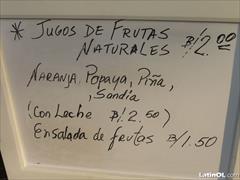 * JUGOS DE FRUTAS
NATURALES B/2.00
NARANJA, Papaya, Piña,
, Sandia
(Con Leche B/. 2.50)
Ensalada de frutas B/1.50
LatinOL.com